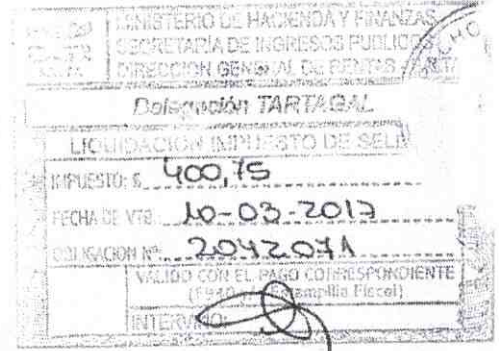 MINISTERIO DE HACIENDA Y FINANZAS
SECRETARÍA DE INGRESOS PUBLICOS
DIRECCION GENERAL DE RENTAS
Delegación TARTAGAL
LIQUIDACION IMPUESTO DE SELL
IMPUESTO: $ 400,75
FECHA DE VTO. 10-03-2017
OBLIGACION Nº 2042071
VALIDO CON EL PAGO CORRESPONDIENTE
Estampilla Fiscal)
INTERVINO: